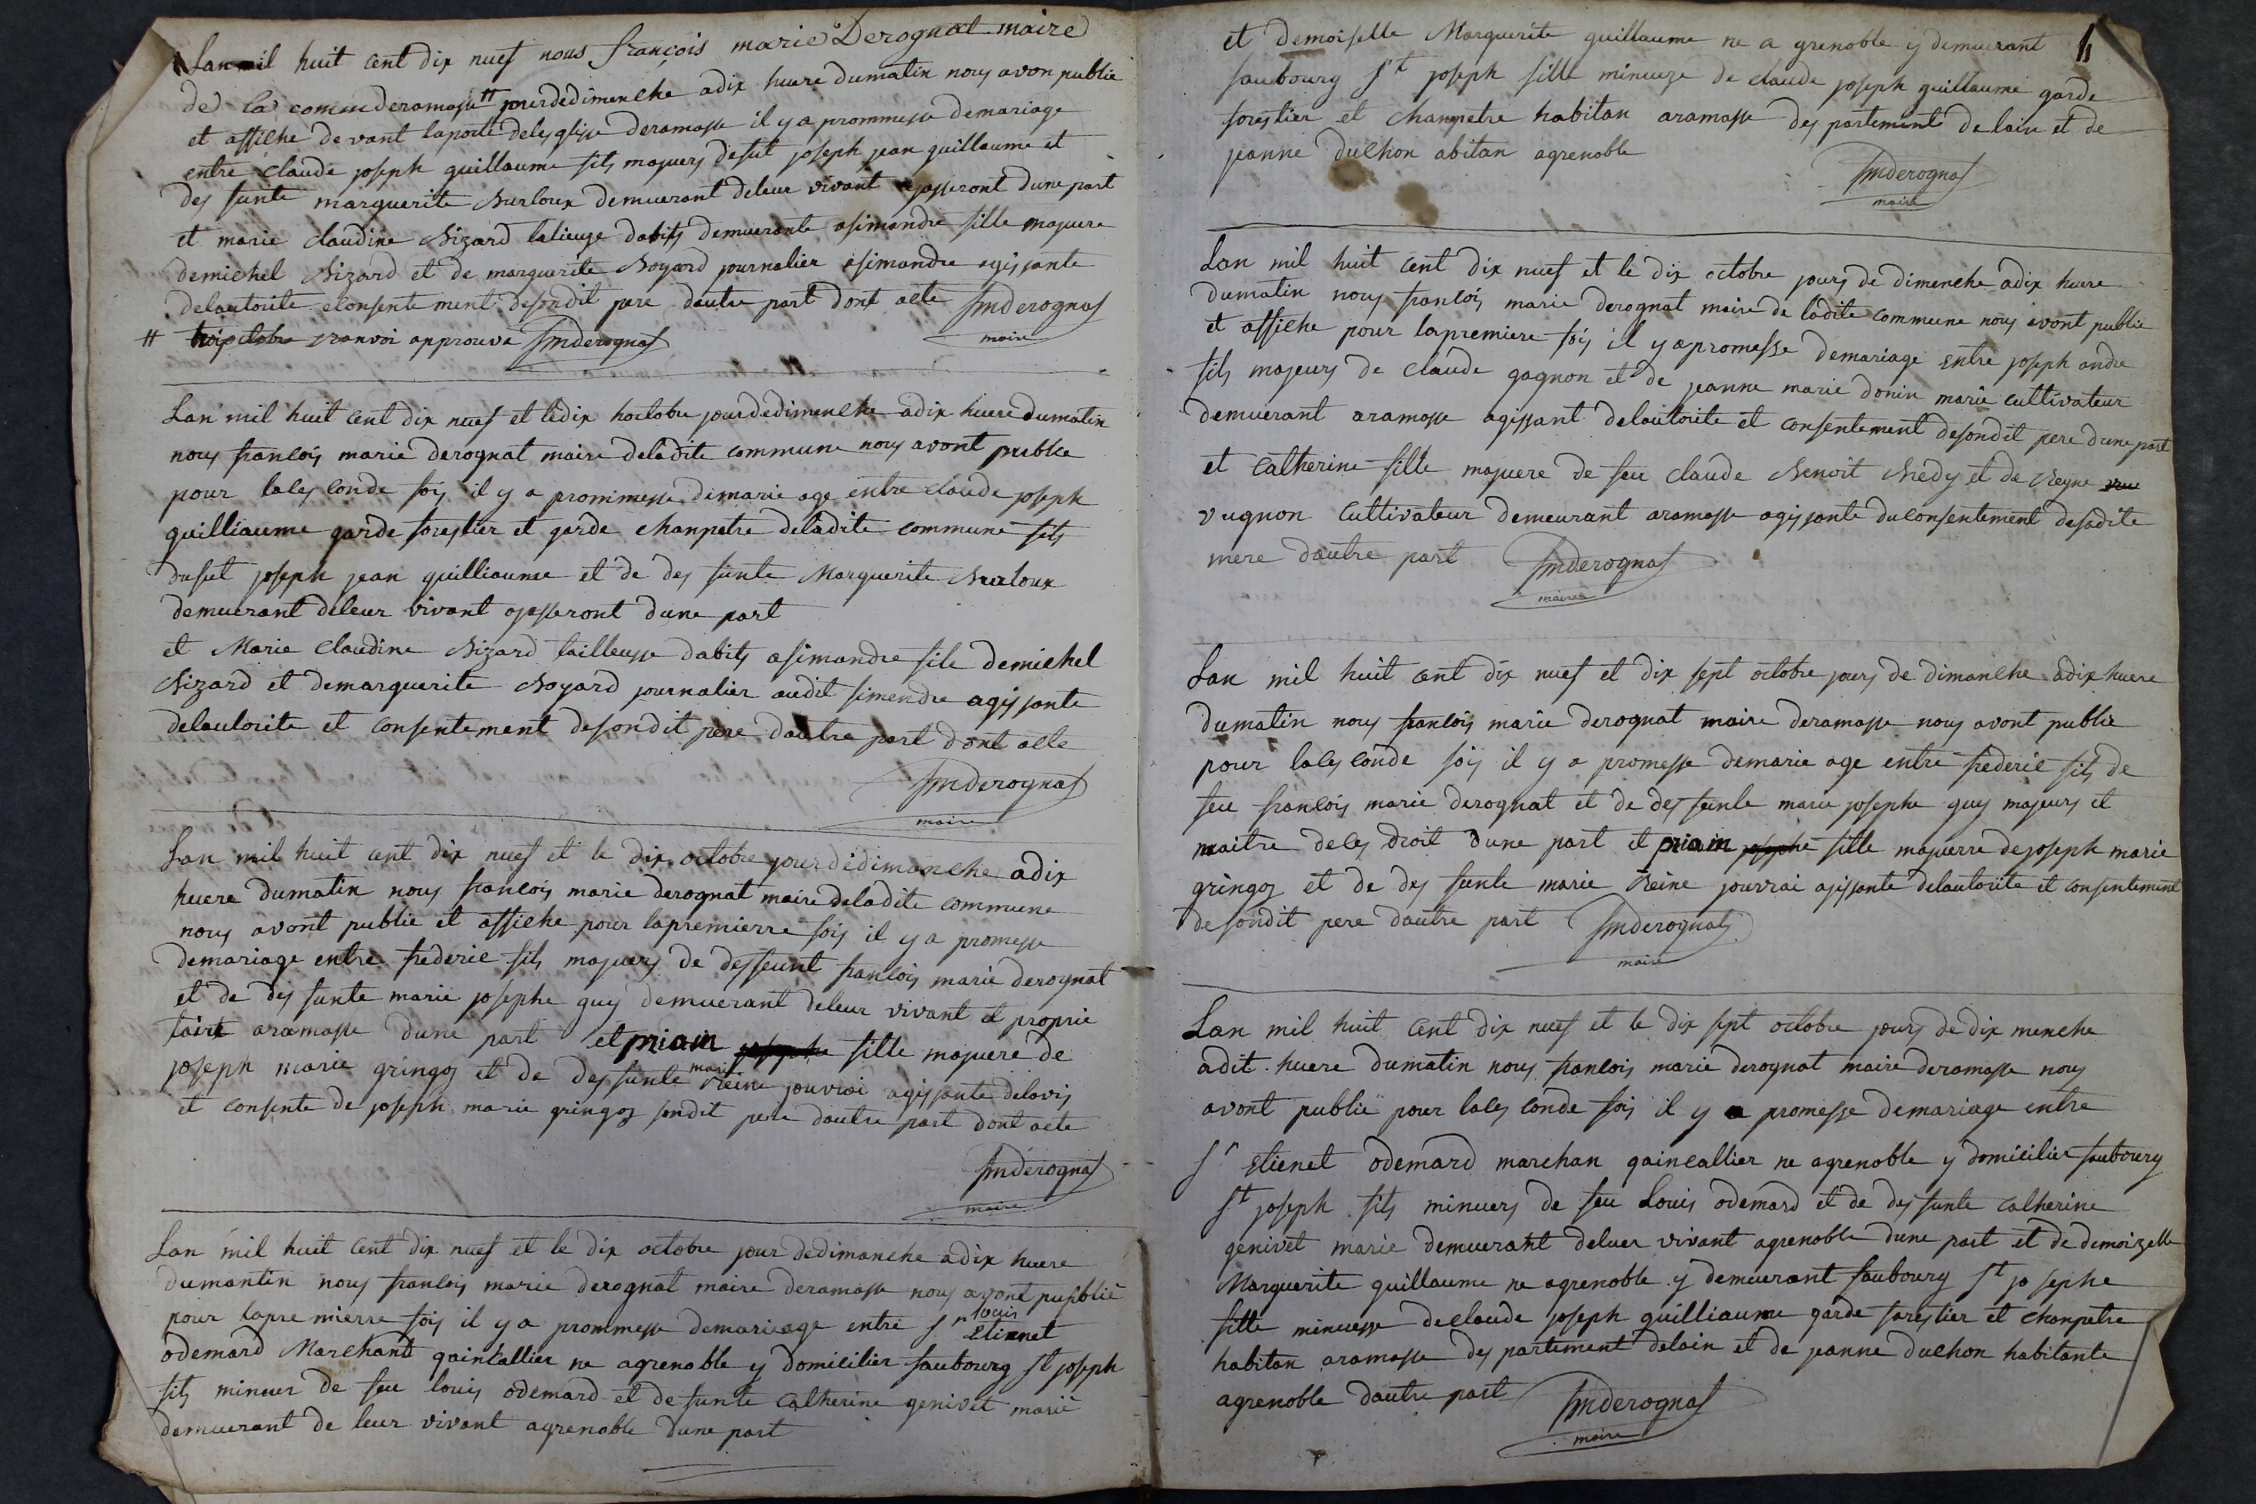 Lan mil huit cent dix nuef nous françois marie Derognat maire
de la comune deramasse # jourdedimenche adix huere dumatin nous avon publié
et affiche devant laporte delesglisse deramasse il y a prommesse demariage
entre claude joseph guillaume fils majuers defut joseph jean guillaume et
des funte marguerite Burloux demuerant deleur vivant ajasseront dune part
et marie claudine Bizard talieuze dabits demuerante asimandre fille majuere
demichel Bizard et de marguerite Boyard journalier asimandre agissante
delautorite econsentement desondit pere dautre part dont acte fmderognat
maire
# octobre ranvoi approuvé fmderognat
Lan mil huit cent dix nuef et ledix hoctobre jourdedimenche adix huere dumatin
nous francois marie derognat maire deladite commune nous avont publie
pour lalesconde fois il y a prommesse demarieage entre claude joseph
guilliaume garde forestier et garde chanpetre deladite commune fils
dufut joseph jean guilliaume et de des funte Marguerite Burloux
demuerant deleur vivant ajasseront dune part
et Marie claudine Bizard tailleusse dabits asimandre file demichel
Bizard et demarguerite Boyard journalier audit simendre agissante
delautorite et consentement desondit pere dautre part dont acte
fmderognat
maire
Lan mil huit cent dix nuef et le dix octobre jourdedimanche adix
huere dumatin nous francois marie derognat maire deladite commune
nous avont publie et affiche pour lapremierre fois il y a promesse
demariage entre frederic fils majuers de deffeunt francois marie derognat
et de des funte marie josephe guy demuerant deleur vivant et proprie
taire aramasse dune part et priain fille majuere de
joseph marie gringoz et de des funte marie Reine jouvrai agissante delavis
et consente de joseph marie gringoz sondit pere dautre part dont acte
fmderognat
maire
Lan mil huit cent dix nuef et le dix octobre jour dedimanche adix huere
dumantin nous francois marie derognat maire deramasse nous avont pupblié
pour lapremierre fois il y a prommesse demarieage entre sr louis Etiennet
odemard Marchant quincallier ne agrenoble y domicilier faubourg st joseph
fils mineur de feu louis odemard et defunte Catherine genivet marié
demuerant de leur vivant agrenoble dune part
et demoiselle Marguerite guillaume ne a grenoble y demuerant
faubourg st joseph fille minueze de claude joseph guillaume garde
forestier et chanpetre habitan aramasse des partement delain et de
jeanne Duchon abitan agrenoble
fmderognat
maire
Lan mil huit cent dix nuef et le dix octobre jours de dimenche adix huere
dumatin nous francois marie derognat maire de ladite commune nous avont publie
et affiche pour lapremiere fois il y apromesse demariage entre joseph andre
fils majeurs de claude gagnon et de jeanne marie donin marié cultivateur
demuerant aramasse agissant delautorite et consentement desondit pere dune part
et Catherine fille majuere de feu claude Benoit Bredy et de Reyne
vugnon cultivateur demeurant aramasse agissante duconsentement desadite
mere dautre part fmderognat
maire
Lan mil huit cent dix nuef et dix sept octobre jours de dimanche adix huere
dumatin nous francois marie derognat maire deramasse nous avont publie
pour lalesconde fois il y a promesse demarie age entre frederic fils de
feu francois marie derognat et de des feunte marie josephe guy majeurs et
maitre deces droit dune part et priain josephe fille majuerre dejoseph marie
gringoz et de des funte marie Reine jouvrai agissante delautorite et consentement
de sondit pere dautre part fmderognat
maire
Lan mil huit cent dix nuef et le dix sept octobre jours de dix menche
adit huere dumatin nous francois marie derognat maire deramasse nous
avont publié pour lalesconde fois il y a promesse demariage entre
sr Etienet odemard marchan quincallier ne agrenoble y domicilier faubourg
st joseph fils minuers de feu Louis odemard et de des funte catherine
genivet marie demuerant deluer vivant agrenoble dune part et de demoizelle
Marguerite guillaume ne agrenoble y demeurant faubourg st josephe
fille minuesse declaude joseph guilliaume garde forestier et chanpetre
habitan aramasse des partement delain et de jeanne duchon habitante
agrenoble dautre part fmderognat
maire